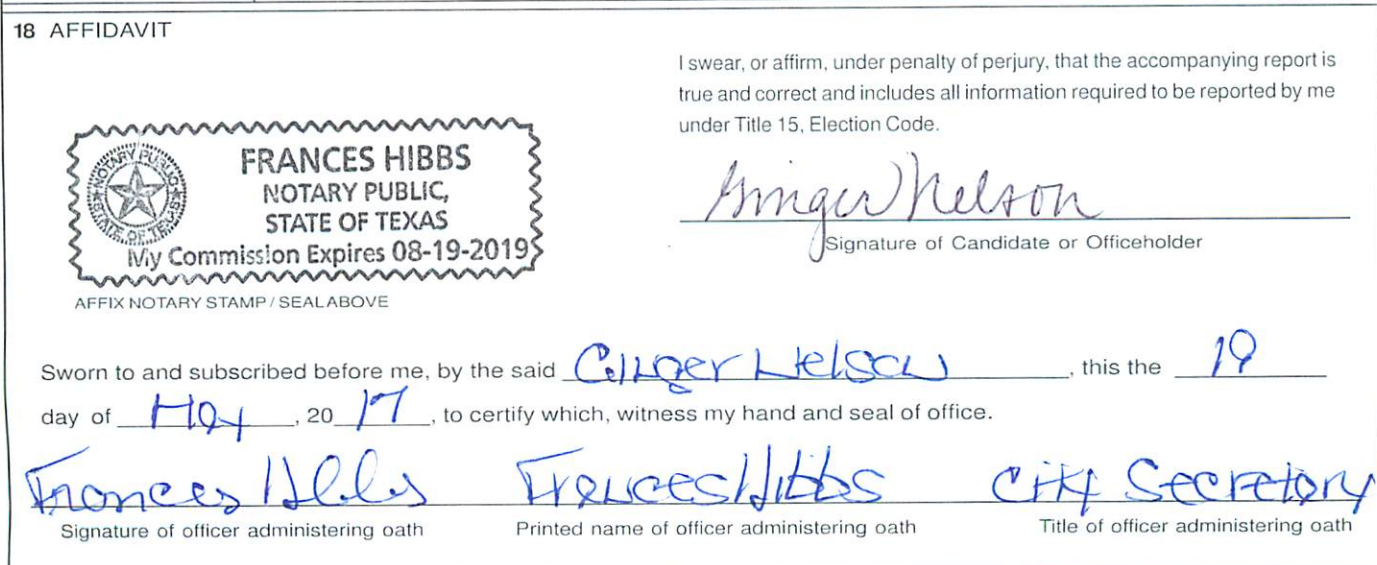 18 AFFIDAVIT
I swear, or affirm, under penalty of perjury, that the accompanying report is
true and correct and includes all information required to be reported by me
under Title 15, Election Code.
NOTARY PUBLIC
STATE OF TEXAS
FRANCES HIBBS
NOTARY PUBLIC,
STATE OF TEXAS
My Commission Expires 08-19-2019
Ginger Nelson
Signature of Candidate or Officeholder
AFFIX NOTARY STAMP / SEAL ABOVE
Sworn to and subscribed before me, by the said Ginger Nelson, this the 19
day of May, 20 17, to certify which, witness my hand and seal of office.
Frances Hibbs Frances Hibbs City Secretary
Signature of officer administering oath Printed name of officer administering oath Title of officer administering oath